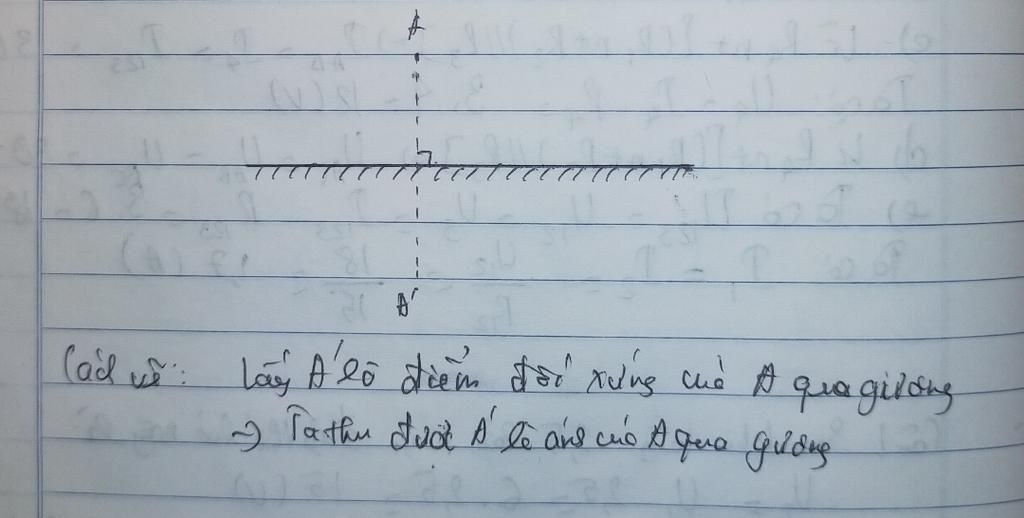 A
A'
Cách vẽ: Lấy A' là điểm đối xứng của A qua gương
→ Ta thu được A' là ảnh của A qua gương